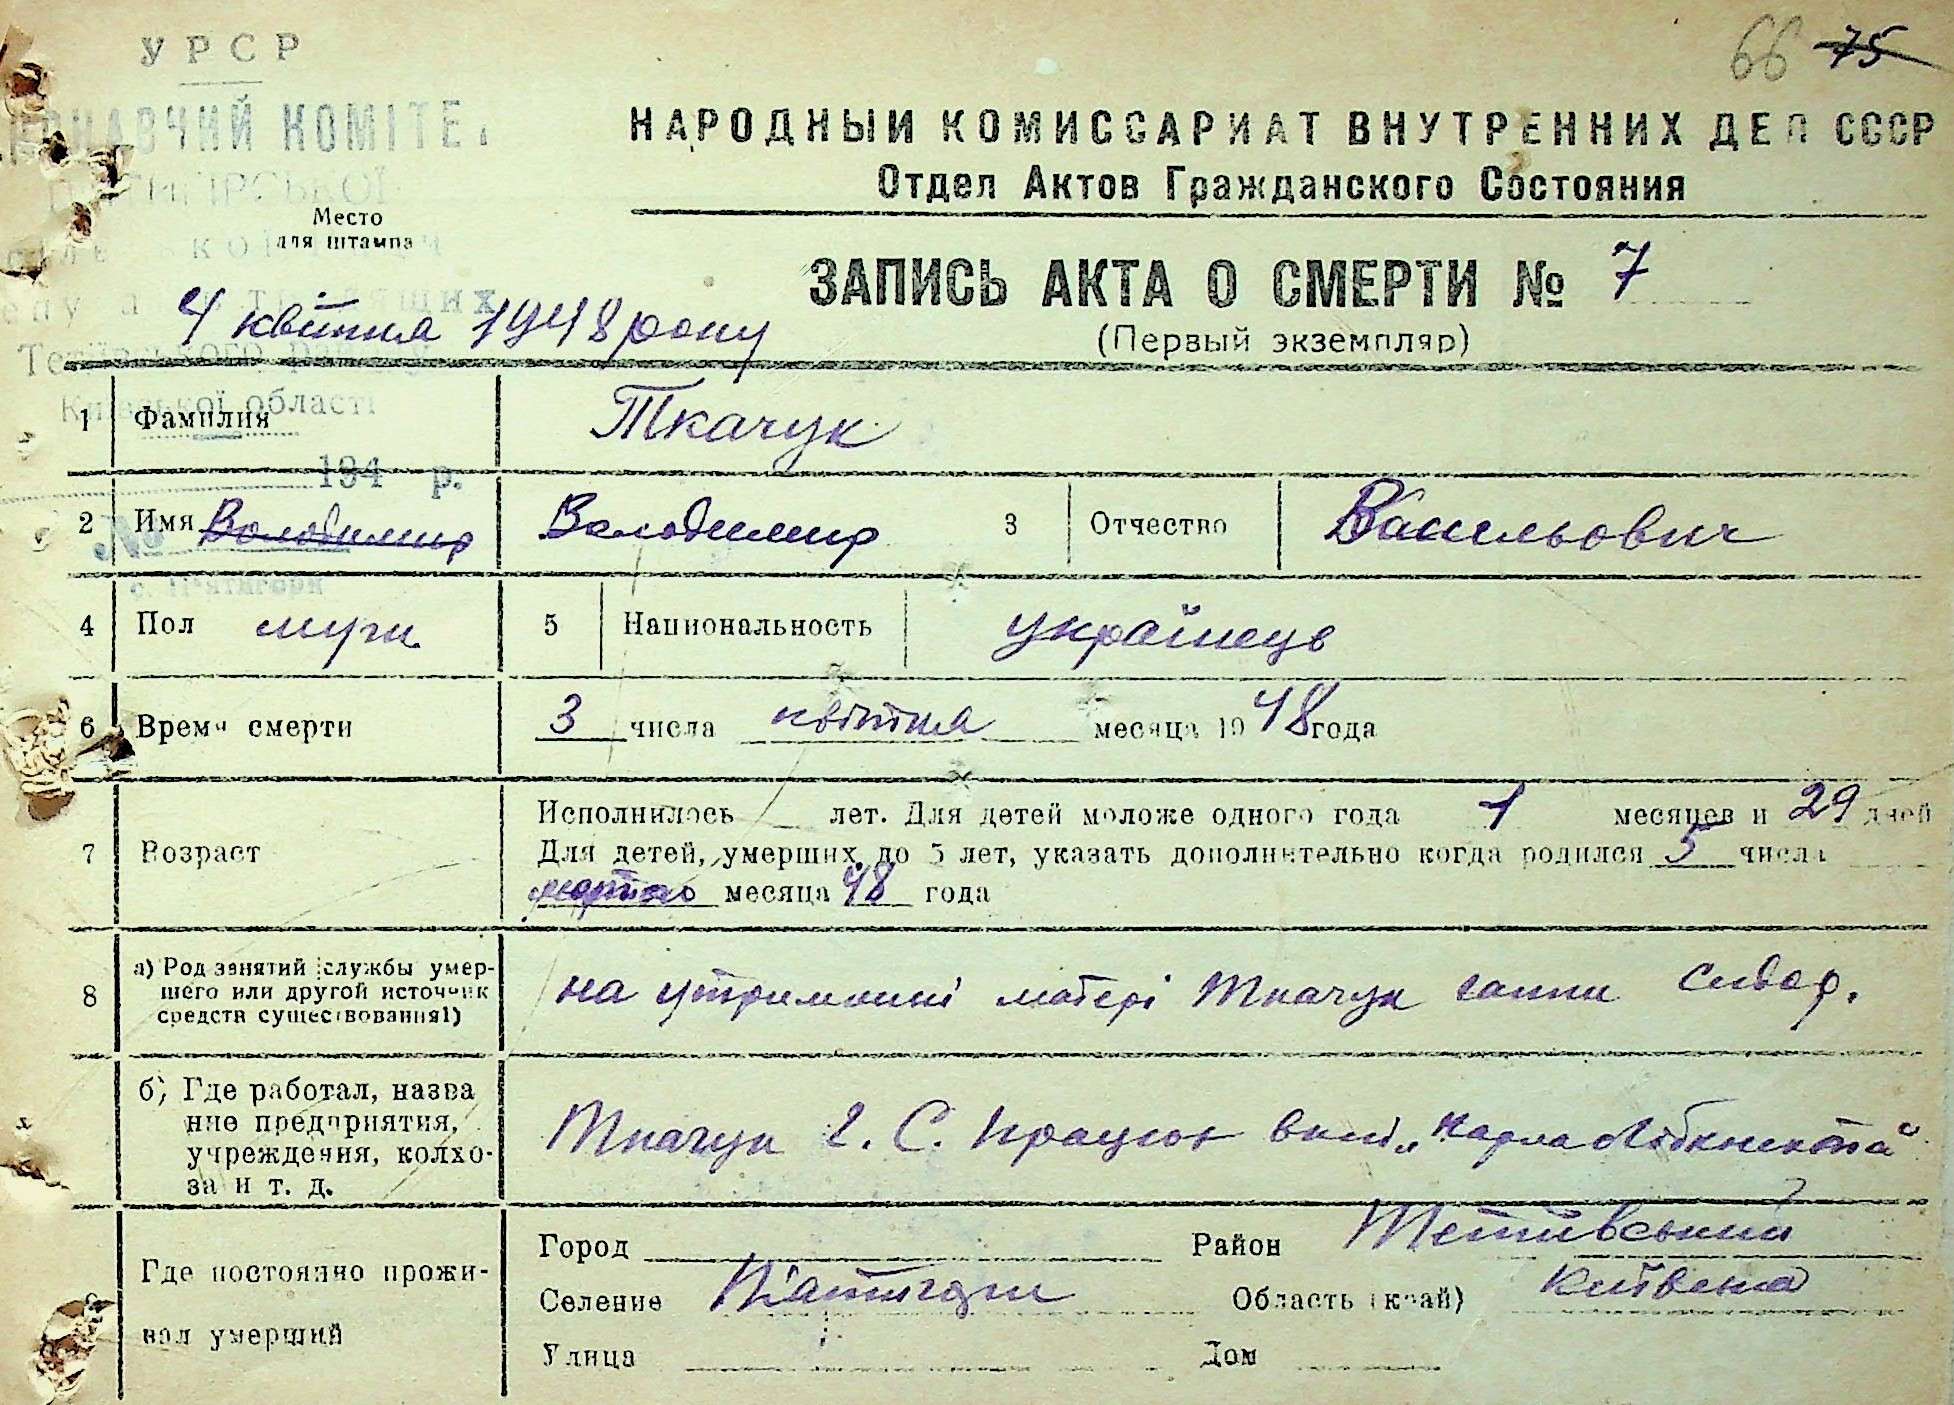 УРСР
66 75
КОМІТЕТ
НАРОДНЫЙ КОМИССАРИАТ ВНУТРЕННИХ ДЕЛ СССР
Отдел Актов Гражданского Состояния
Место
для штампа
ЗАПИСЬ АКТА О СМЕРТИ № 7
4 квітня 1948 року
(Первый экземпляр)
Київської області
1 Фамилия Ткачук
194 р.
2 Имя Володимир Володимир 3 Отчество Васильович
№
с. Пятигори
4 Пол муж. 5 Национальность українець
6 Время смерти 3 числа квітня месяца 1948 года
7 Возраст
Исполнилось лет. Для детей моложе одного года 1 месяцев и 29 дней
Для детей, умерших до 5 лет, указать дополнительно когда родился 5 числа
месяца 48 года
8 а) Род занятий службы умер-
шего или другой источник
средств существования1)
на утриманні матері Ткачук Ганни Сидор.
б) Где работал, назва
ние предприятия,
учреждения, колхо-
за и т. д.
Ткачук Г. С. працює в кол. „Карла Лібкнехта“
Где постоянно прожи-
вал умерший
Город Район Тетіївський
Селение П'ятигори Область (край) Київська
Улица Дом